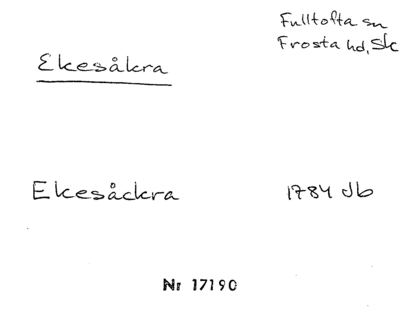 Fulltofta sn
Frosta hd, Sk
Ekesåkra
Ekesåckra 1784 Jb
Nr 17190